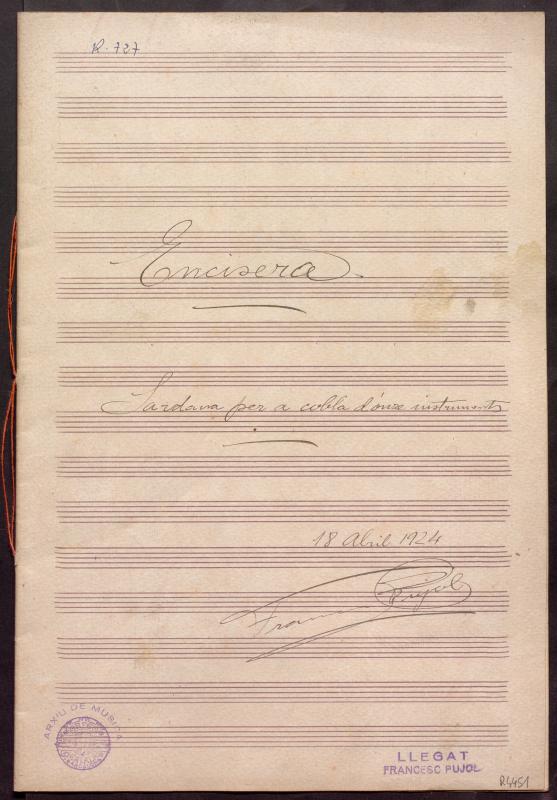 R. 727
Encisera
Sardana per a cobla d'onze instruments
18 Abril 1924
Francesc Pujol
ARXIU DE MUSICA
LLEGAT
FRANCESC PUJOL
R.4451